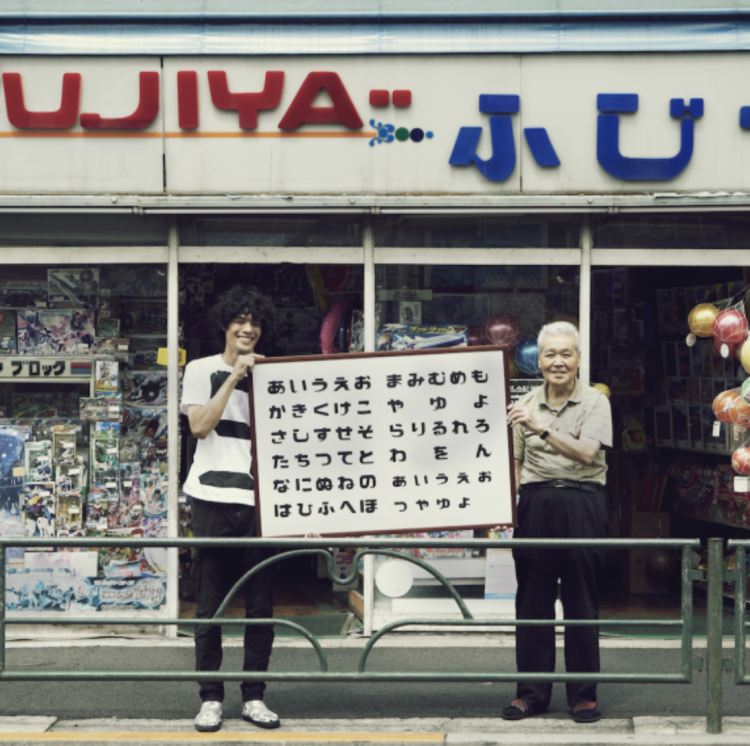 UJIYA
ふじ
ブロック
あいうえお まみむめも
かきくけこ や ゆ よ
さしすせそ らりるれろ
たちつてと わ を ん
なにぬねの あいうえお
はひふへほ つやゆよ